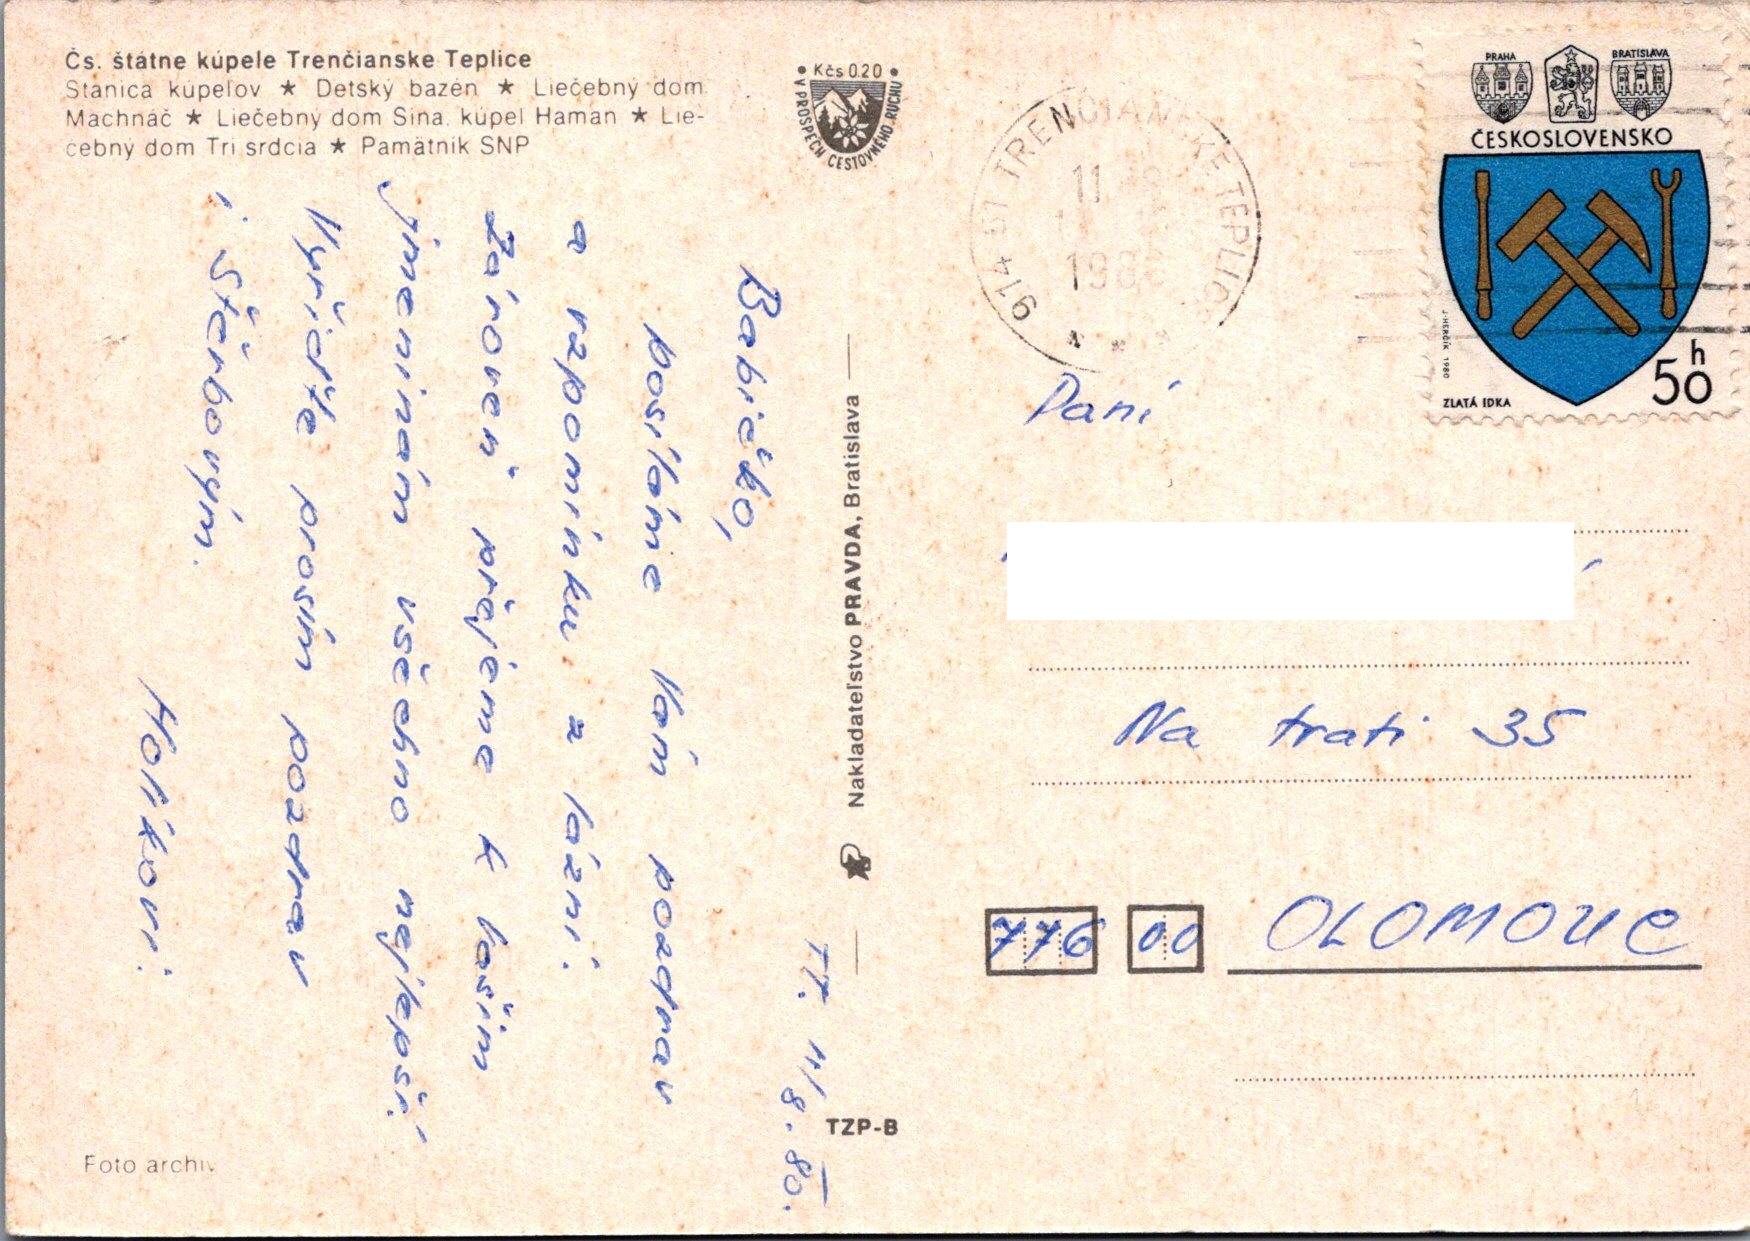 Čs. štátne kúpele Trenčianske Teplice
Stanica kúpeľov ★ Detský bazén ★ Liečebný dom
Machnáč ★ Liečebný dom Sina, kúpeľ Haman ★ Lie-
čebný dom Tri srdcia ★ Pamätník SNP
• Kčs 0.20 •
V PROSPECH CESTOVNÉHO RUCHU
TT. 11/8. 80.
Babičko,
posíláme Vám pozdrav
a vzpomínku z lázní.
Zároveň přejeme k Vašim
jmeninám všechno nejlepší!
Vyřiďte prosím pozdrav
i Štěrbovým.
Holíkovi.
Foto archív
Nakladateľstvo PRAVDA, Bratislava
TZP-B
914 51 TRENČIANSKE TEPLICE
11
PRAHA
BRATISLAVA
ČESKOSLOVENSKO
J. HERČÍK 1980
ZLATÁ IDKA
50 h
Paní
Na trati 35
776 00 OLOMOUC